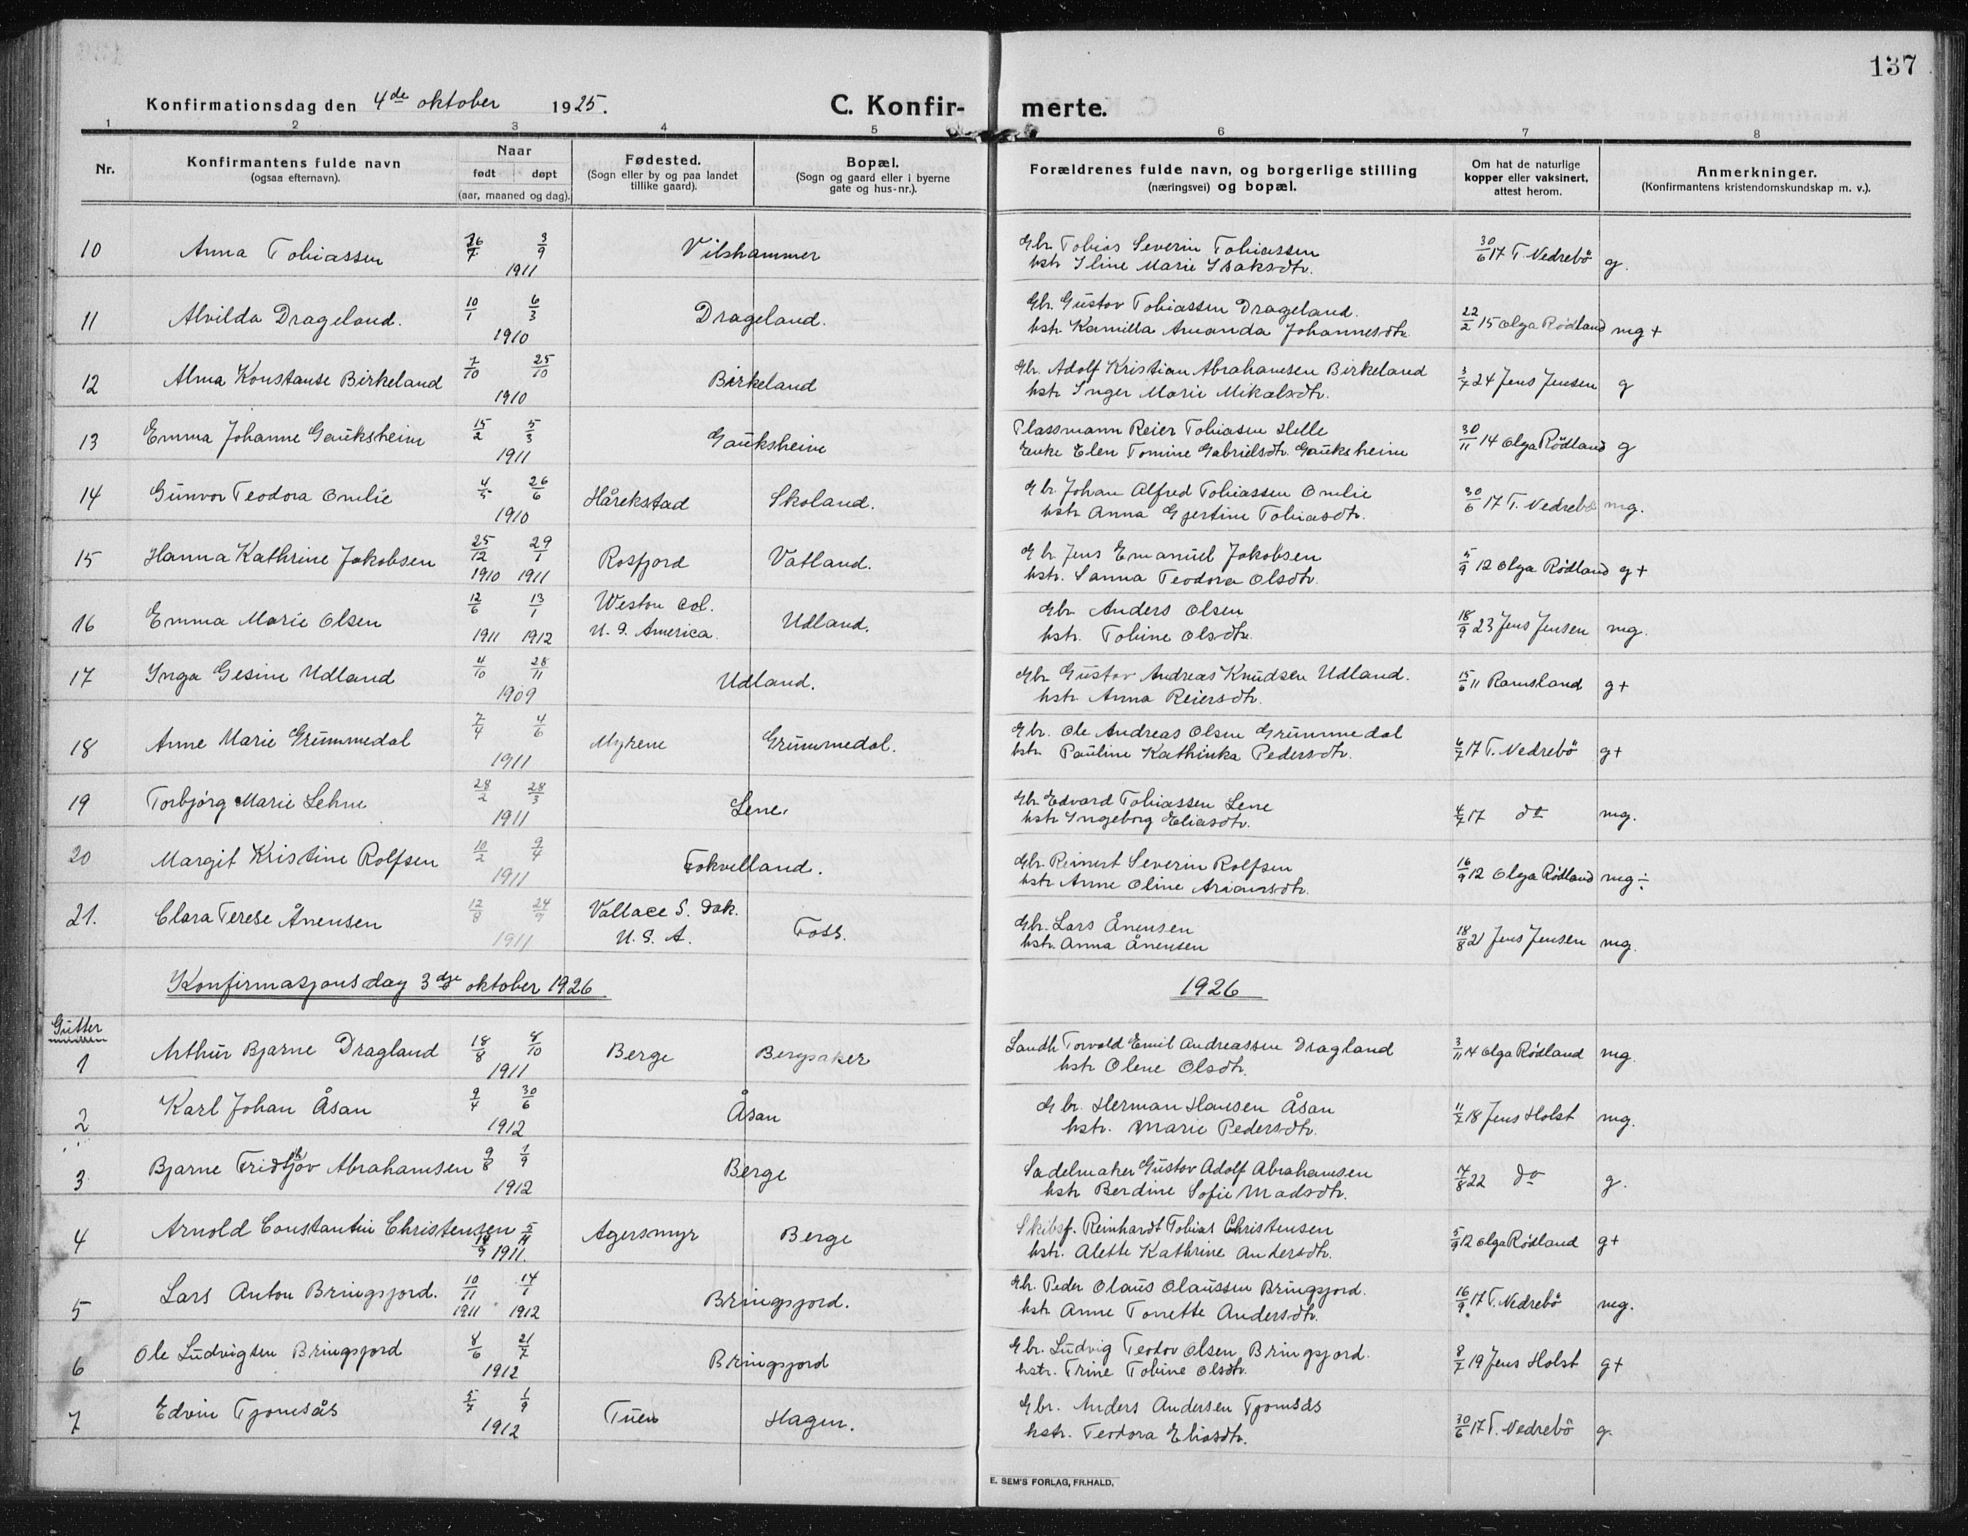 137
Konfirmationsdag den 4de oktober 1925.
C. Konfirmerte.
1 2 3 4 5 6 7 8
Nr.
Konfirmantens fulde navn
(ogsaa efternavn).
Naar
født døpt
(aar, maaned og dag).
Fødested.
(Sogn eller by og paa landet
tillike gaard).
Bopæl.
(Sogn og gaard eller i byerne
gate og hus-nr.).
Forældrenes fulde navn, og borgerlige stilling
(næringsvei) og bopæl.
Om hat de naturlige
kopper eller vaksinert,
attest herom.
Anmerkninger.
(Konfirmantens kristendomskundskap m. v.).
10 Anna Tobiassen 26/7 3/9 1911 Vilshammer Gbr. Tobias Severin Tobiassen
hstr Iline Marie Isaksdtr. 30/6 17 T. Nedrebö g.
11 Alvilda Drageland. 10/1 6/3 1910 Drageland. Gbr. Gustav Tobiassen Drageland.
hstr. Kamilla Amanda Johannesdtr. 22/2 15 Olga Rødland mg+
12 Alma Konstanse Birkeland 7/10 25/10 1910 Birkeland Gbr. Adolf Kristian Abrahamsen Birkeland
hstr Inger Marie Mikalsdtr. 3/7 24 Jens Jensen g
13 Emma Johanne Gauksheim 15/2 5/3 1911 Gauksheim Plassmann Reier Tobiasen Helle
Enke Elen Tomine Gabrielsdtr. Gauksheim 30/11 14 Olga Rødland g
14 Gunvor Teodora Omlie 4/5 26/6 1910 Hårekstad Skoland. Gbr. Johan Alfred Tobiassen Omlie
hstr Anna Gjertine Tobiasdtr. 30/6 17 T. Nedrebö mg.
15 Hanna Kathrine Jakobsen 25/12 29/1 1910 1911 Rosfjord Vatland. Gbr. Jens Emanuel Jakobsen
hstr. Sanna Teodora Olsdtr. 5/9 12 Olga Rødland g+
16 Emma Marie Olsen 12/6 13/1 1911 1912 Weston Col.
U. S. America. Udland. Gbr. Anders Olsen
hstr. Tobine Olsdtr. 18/9 23 Jens Jensen mg.
17 Inga Gesine Udland 4/10 28/11 1909 Udland. Gbr Gustav Andreas Knudsen Udland.
hstr. Anna Reiersdtr. 15/6 11 Ramsland g+
18 Anne Marie Grummedal 7/4 4/6 1911 Myrene Grummedal. Gbr. Ole Andreas Olsen Grummedal
hstr. Pauline Kathinka Pedersdtr. 6/7 17 T. Nedrebö g+
19 Torbjørg Marie Lehne 28/2 28/3 1911 Lene. Gbr. Edvard Tobiassen Lene
hstr Ingeborg Eliasdtr. 4/7 17 do mg.
20 Margit Kristine Rolfsen 10/2 9/4 1911 Fokvelland. Gbr. Reinert Severin Rolfsen
hstr Anne Oline Ariansdtr. 16/9 12 Olga Rødland mg÷
21. Clara Terese Ånensen 12/8 24/9 1911 Vallace S. Dak.
U. S. A. Foss. Gbr. Lars Ånensen
hstr. Anna Ånensen 18/8 21 Jens Jensen mg.
Konfirmasjonsdag 3dje oktober 1926 1926
Gutter
1 Arthur Bjarne Dragland 18/8 8/10 1911 Berge Bergsaker Landh. Torvald Emil Andreassen Dragland
hstr Olene Olsdtr. 3/11 14 Olga Rødland mg.
2 Karl Johan Åsan 9/4 30/6 1912 Åsan Gbr. Herman Hansen Åsan
hstr. Marie Pedersdtr. 11/7 18 Jens Holst mg.
3 Bjarne Fridtjov Abrahamsen 9/8 1/9 1912 Berge Sadelmaker Gustav Adolf Abrahamsen
hstr Berdine Sofie Madsdtr. 4/8 22 do g.
4 Arnold Constantin Christensen 5/11 1911. Agersmyr Berge Skibsf. Reinhardt Tobias Christensen
hstr. Alette Kathrine Andersdtr. 5/9 12 Olga Rødland g+
5 Lars Anton Bringsjord. 10/11 14/1 1911 1912 Bringsjord. Gbr. Peder Olaus Olaussen Bringsjord.
hstr Anne Tonette Andersdtr. 16/9 17 T. Nedrebö mg.
6 Ole Ludvigsen Bringsjord 8/6 21/7 1912 Bringsjord Gbr. Ludvig Teodor Olsen Bringsjord.
hstr. Trine Tobine Olsdtr. 8/7 19 Jens Holst g+
7 Edvin Tjomsås 5/7 1/9 1912 Tuen Hagen. Gbr. Anders Andersen Tjomsås
hstr. Teodora Eliasdtr. 30/6 17 T. Nedrebö g.
E. SEM'S FORLAG, FR.HALD.